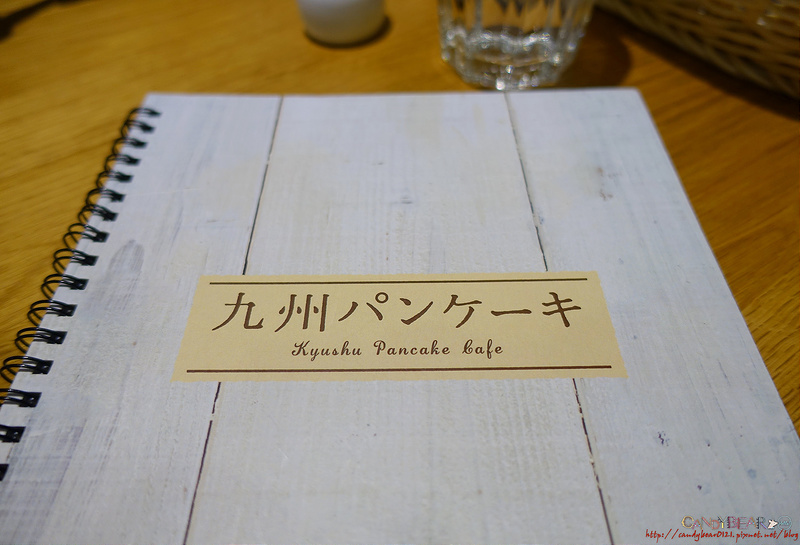 九州パンケーキ
Kyushu Pancake Cafe
CANDYBEAR
http://candybear0121.pixnet.net/blog